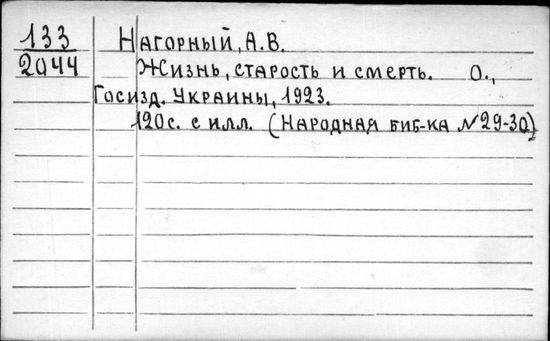 133 Нагорный, А.В.
2044 Жизнь, старость и смерть. О.,
Госизд. Украины, 1923.
120с. с илл. (Народная биб-ка №29-30)